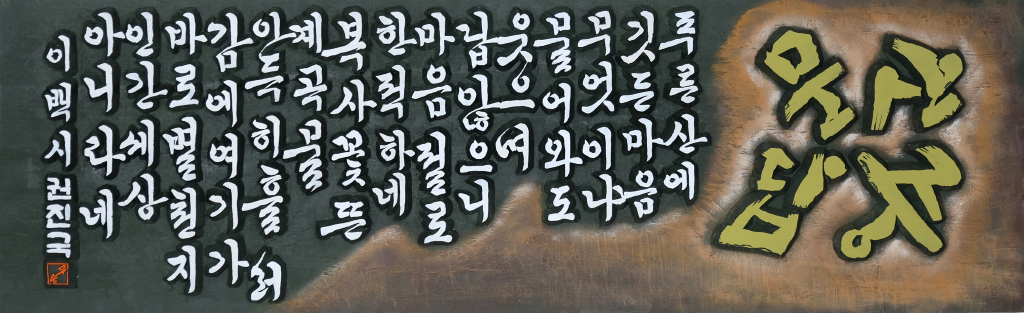 산중
문답
푸른산에
깃든마음
무엇이냐
물어와도
웃으며
답않으니
마음절로
한적하네
복사꽃뜬
계곡물
아득히흘러
감에여기가
바로별천지
인간세상
아니라네
이백시권진국